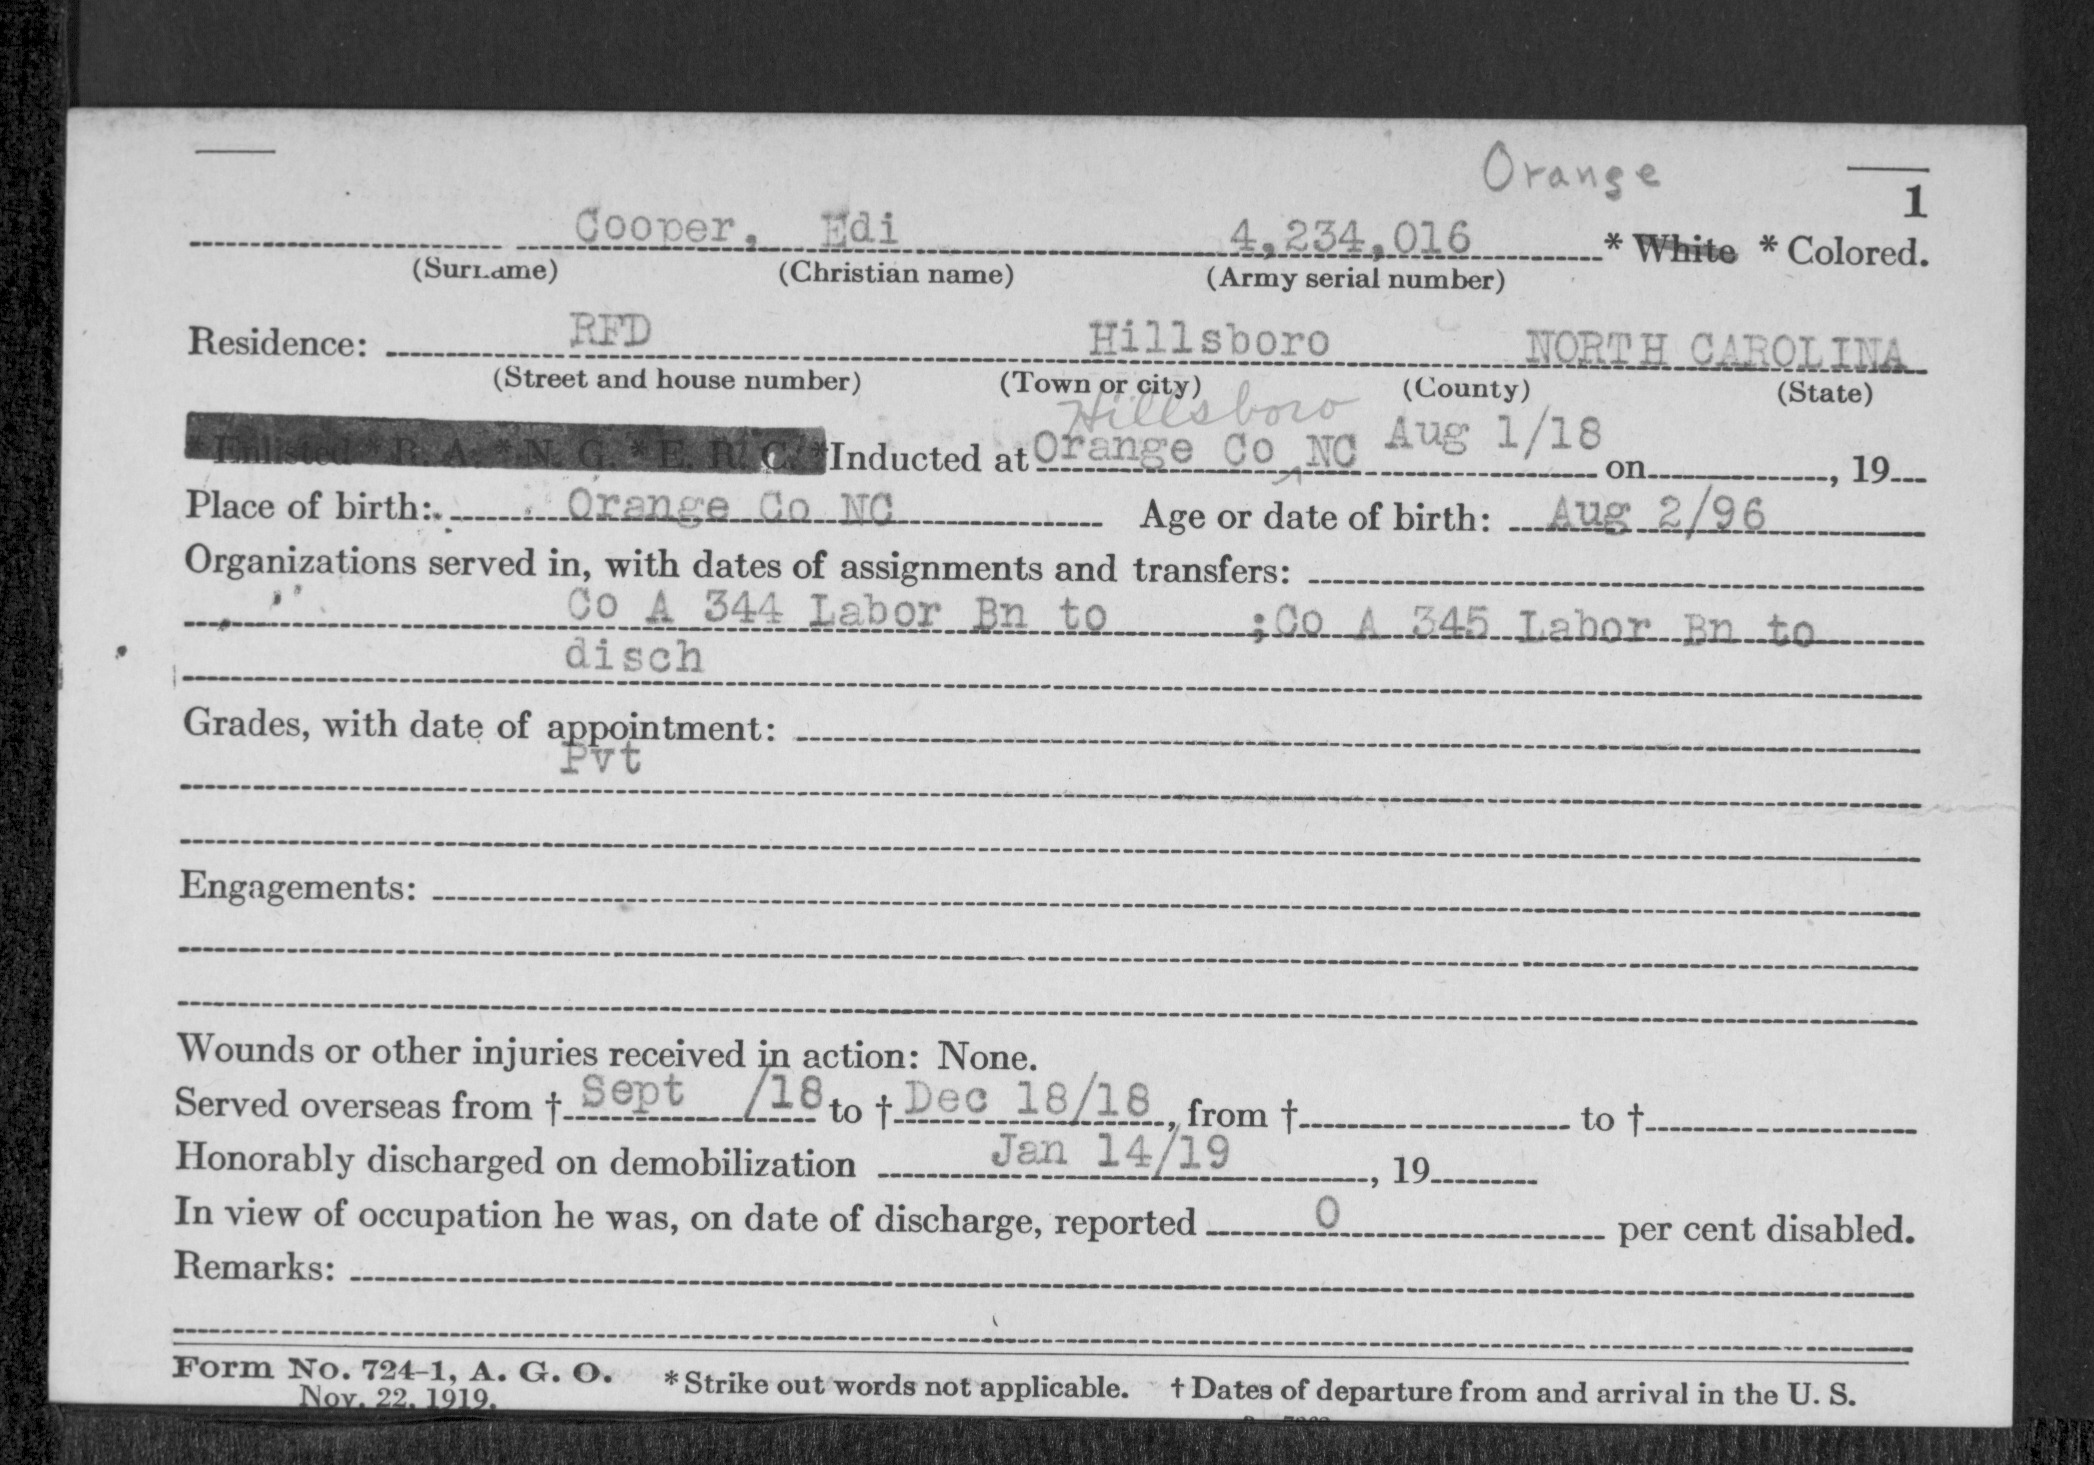 Orange
1
Cooper, Edi 4,234,016 * White * Colored.
(Surname) (Christian name) (Army serial number)
Residence: RFD Hillsboro NORTH CAROLINA
(Street and house number) (Town or city) (County) (State)
Hillsboro
*Enlisted *R. A. *N. G. *E. R. C. *Inducted at Orange Co ^ NC Aug 1/18 on , 19
Place of birth: Orange Co NC Age or date of birth: Aug 2/96
Organizations served in, with dates of assignments and transfers:
Co A 344 Labor Bn to ;Co A 345 Labor Bn to
disch
Grades, with date of appointment:
Pvt
Engagements:
Wounds or other injuries received in action: None.
Served overseas from † Sept /18 to † Dec 18/18, from † to †
Honorably discharged on demobilization Jan 14/19, 19
In view of occupation he was, on date of discharge, reported 0 per cent disabled.
Remarks:
Form No. 724-1, A. G. O. *Strike out words not applicable. † Dates of departure from and arrival in the U. S.
Nov. 22, 1919.